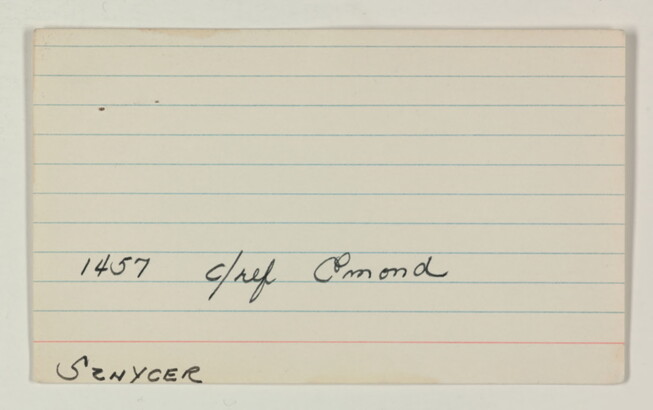 1457 c/ref Osmond
SZNYCER